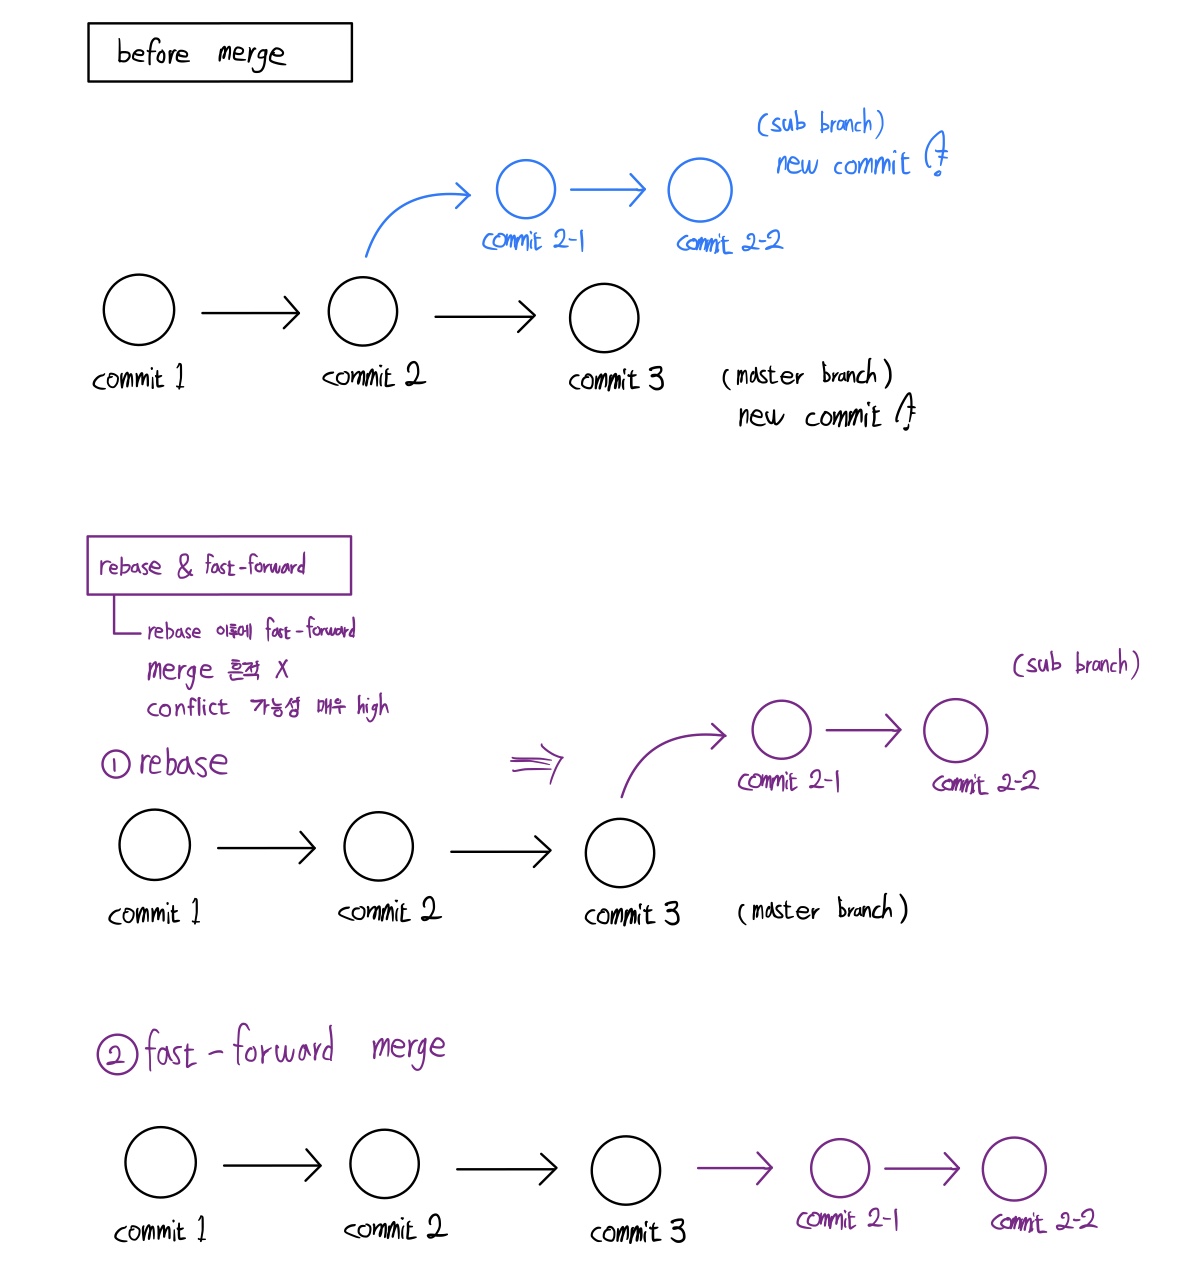 before merge
(sub branch)
new commit
commit 2-1
commit 2-2
commit 1
commit 2
commit 3
(master branch)
new commit
rebase & fast-forward
rebase 이후에 fast-forward
merge 흔적 X
conflict 가능성 매우 high
(sub branch)
① rebase
commit 2-1
commit 2-2
commit 1
commit 2
commit 3
(master branch)
② fast-forward merge
commit 1
commit 2
commit 3
commit 2-1
commit 2-2